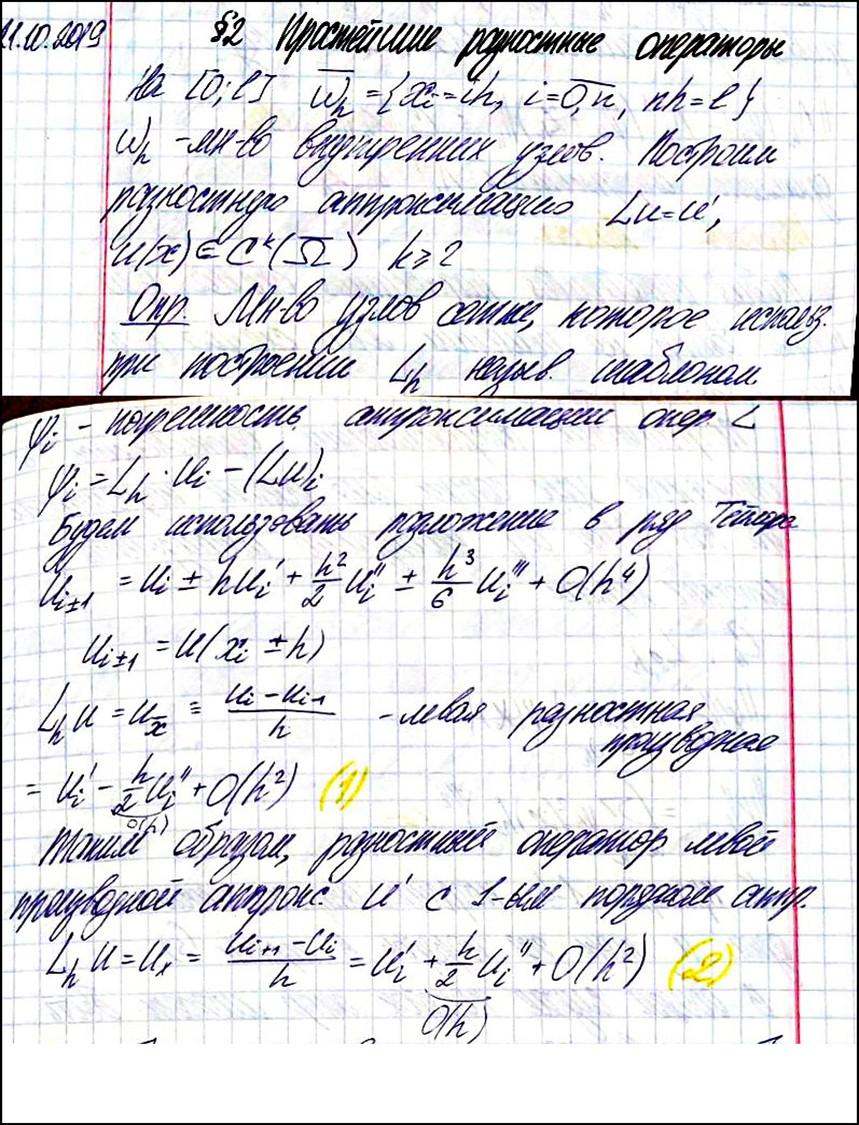 11.10.2019 §2 Простейшие разностные операторы
На [0; l] ω̅ₕ = {xᵢ = ih, i = 0,n̅, nh = l}
ωₕ - мн-во внутренних узлов. Построим
разностную аппроксимацию Lu = u',
u(x) ∈ Cᵏ(Ω̅) k ≥ 2
Опр. Мн-во узлов сетки, которое использ.
при построении Lₕ назыв. шаблоном
ψᵢ - погрешность аппроксимации опер. L
ψᵢ = Lₕ · uᵢ - (Lu)ᵢ
Будем использовать разложение в ряд Тейлора
uᵢ±₁ = uᵢ ± huᵢ' + h²/2 uᵢ'' ± h³/6 uᵢ''' + O(h⁴)
uᵢ±₁ = u(xᵢ ± h)
Lₕu = u_x̅ ≡ (uᵢ - uᵢ₋₁)/h - левая разностная
производная
= uᵢ' - h/2 uᵢ'' + O(h²) (1)
O(h)
Таким образом, разностный оператор левой
производной аппрокс. u' с 1-ым порядком аппр.
Lₕu = uₓ = (uᵢ₊₁ - uᵢ)/h = uᵢ' + h/2 uᵢ'' + O(h²) (2)
O(h)